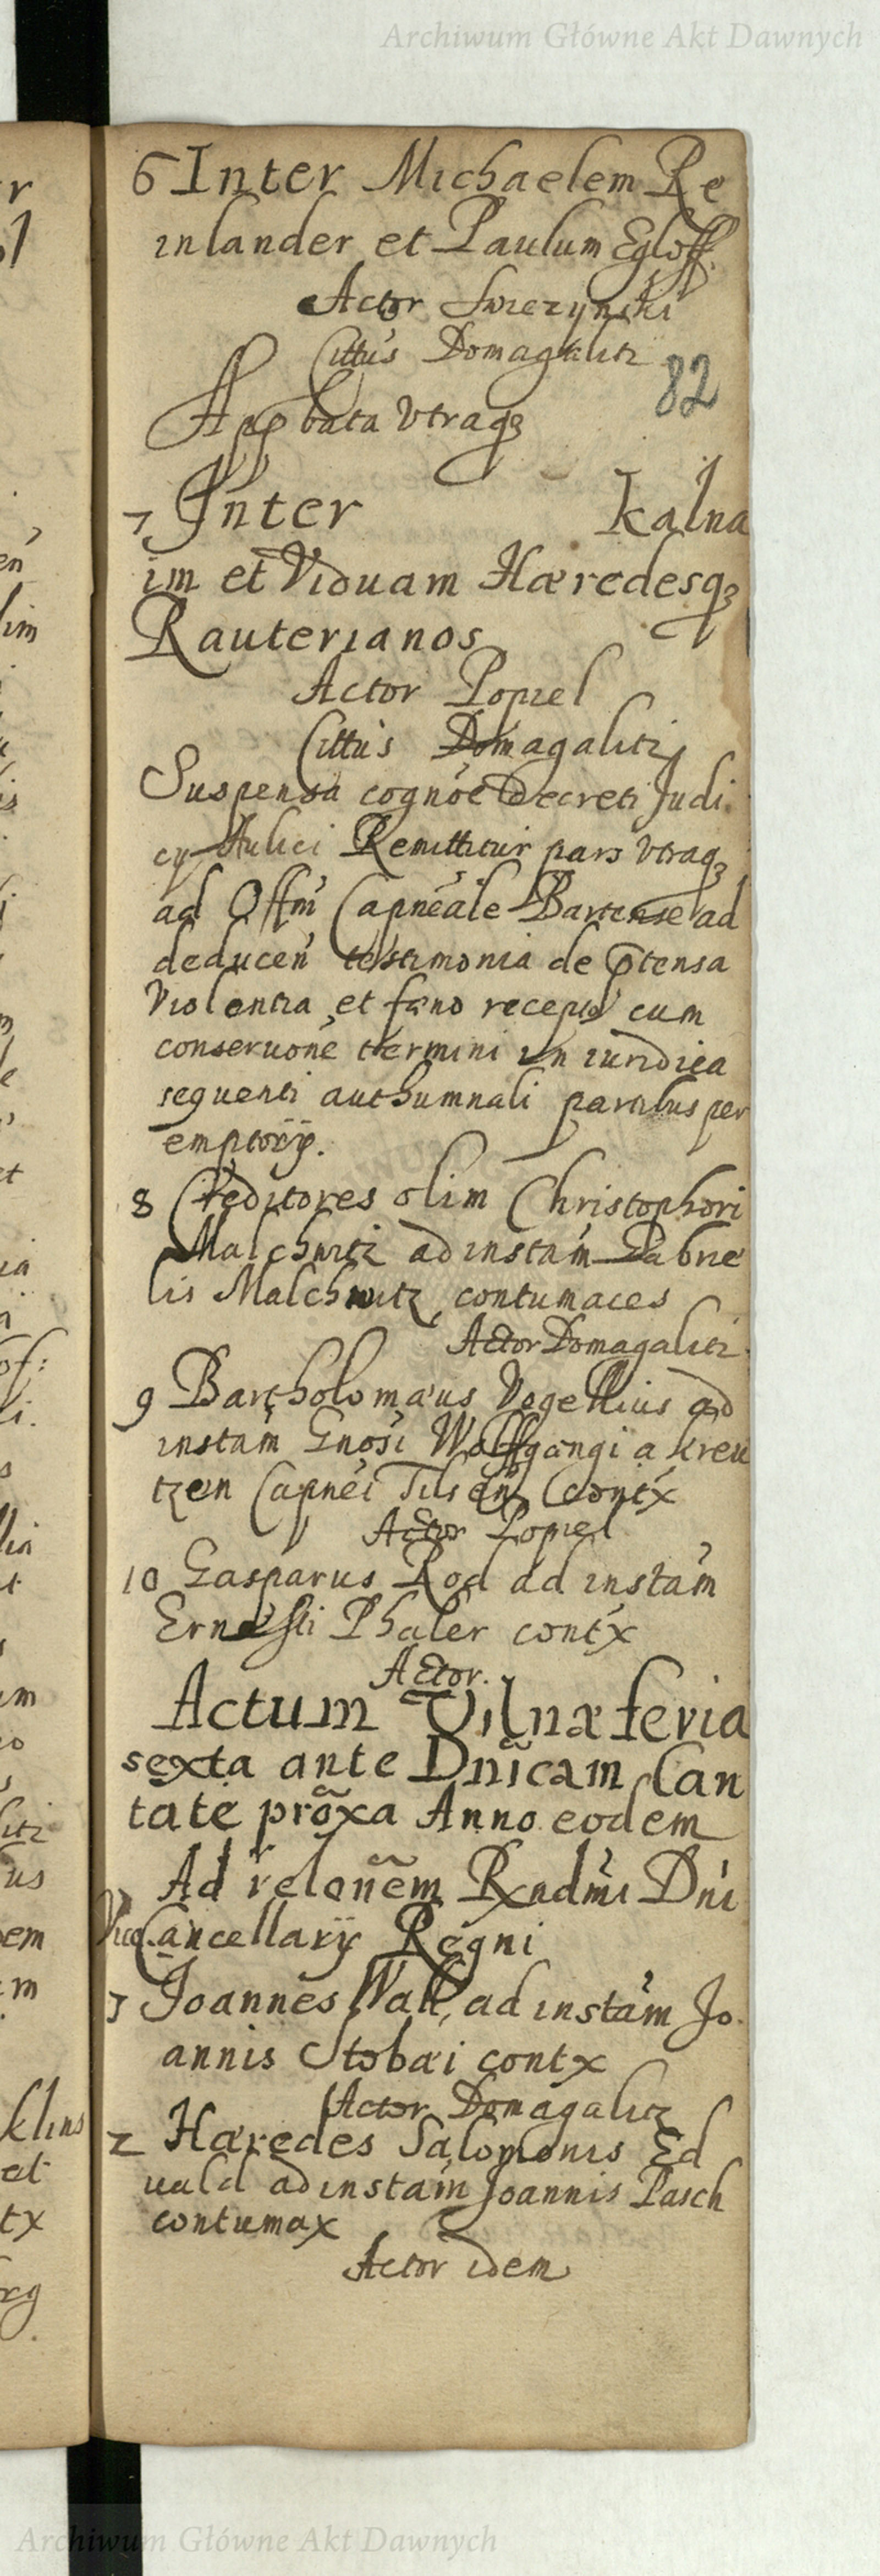 Archiwum Główne Akt Dawnych
6 Inter Michaelem Re
inlander et Paulum Egloff
Actor Swiezynski
Cittus Domagalitz
82
Appbata Vtraqꝫ
7 Inter Kalna
im et Viduam Hæredesqꝫ
Rauterianos
Actor Popiel
Cittus Domagalitz
Suspensa cognõe Decreti Judi
cy Aulici Remittitur pars vtraqꝫ
ad Offm̃ Capnẽale Bartense ad
deducen̄ testimonia de p̄tensa
Violentia et recepto cum
conseruone termini in iuridica
sequenti authumnali partibus per
emptorÿ.
8 Creditores olim Christophori
Malchwitz ad instam̃ Gabrie
lis Malchwitz contumaces
Actor Domagalitz
9 Bartholomæus Vogellius ad
instam̃ Gnosi Wolffgangi a Kreu
tzen Capnei Tilsen̄ Contx
Actor Popiel
10 Gasparus Rod ad instam̃
Ernesti Phaler contx
Actor.
Actum Vilnæ feria
sexta ante Dnĩcam Can
tate prõxa Anno eodem
Ad relonẽm Rxndmi Dni
ViceCancellarÿ Regni
1 Joannes Wall, ad instam̃ Jo
annis Stobæi contx
Actor Domagalitz
2 Hæredes Salomonis Ed
uald ad instam̃ Joannis Pasch
contumax
Actor idem
Archiwum Główne Akt Dawnych